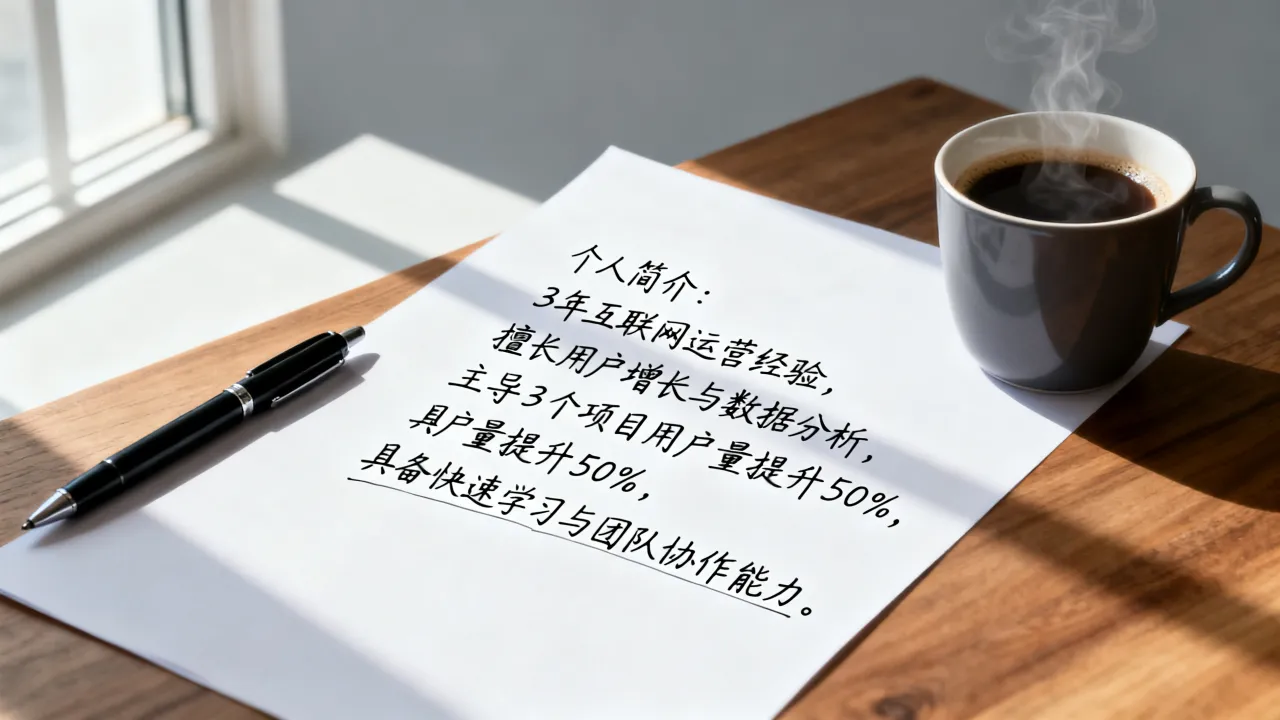 个人简介：
3年互联网运营经验，
擅长用户增长与数据分析，
主导3个项目用户量提升50%，
具户量提升50%，
具备快速学习与团队协作能力。